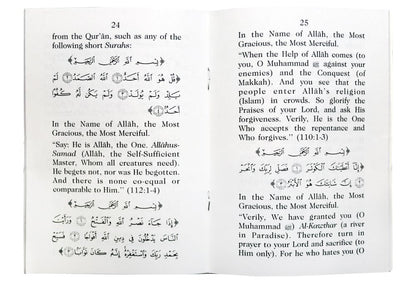 24
from the Qur'ân, such as any of the
following short Surahs:
بِسْمِ اللَّهِ الرَّحْمَٰنِ الرَّحِيمِ
﴿قُلْ هُوَ اللَّهُ أَحَدٌ ۝ اللَّهُ الصَّمَدُ ۝ لَمْ
يَلِدْ وَلَمْ يُولَدْ ۝ وَلَمْ يَكُن لَّهُ كُفُوًا
أَحَدٌ﴾
In the Name of Allâh, the Most
Gracious, the Most Merciful.
"Say: He is Allâh, the One. Allâhus-
Samad (Allâh, the Self-Sufficient
Master, Whom all creatures need).
He begets not, nor was He begotten.
And there is none co-equal or
comparable to Him." (112:1-4)
بِسْمِ اللَّهِ الرَّحْمَٰنِ الرَّحِيمِ
﴿إِذَا جَاءَ نَصْرُ اللَّهِ وَالْفَتْحُ ۝ وَرَأَيْتَ
النَّاسَ يَدْخُلُونَ فِي دِينِ اللَّهِ أَفْوَاجًا ۝ فَسَبِّحْ
بِحَمْدِ رَبِّكَ وَاسْتَغْفِرْهُ إِنَّهُ كَانَ تَوَّابًا﴾
25
In the Name of Allâh, the Most
Gracious, the Most Merciful.
"When the Help of Allâh comes (to
you, O Muhammad ﷺ against your
enemies) and the Conquest (of
Makkah). And you see that the
people enter Allâh's religion
(Islam) in crowds. So glorify the
Praises of your Lord, and ask His
forgiveness. Verily, He is the One
Who accepts the repentance and
Who forgives." (110:1-3)
بِسْمِ اللَّهِ الرَّحْمَٰنِ الرَّحِيمِ
﴿إِنَّا أَعْطَيْنَاكَ الْكَوْثَرَ ۝ فَصَلِّ لِرَبِّكَ وَانْحَرْ
۝ إِنَّ شَانِئَكَ هُوَ الْأَبْتَرُ﴾
In the Name of Allâh, the Most
Gracious, the Most Merciful.
"Verily, We have granted you (O
Muhammad ﷺ) Al-Kawthar (a river
in Paradise). Therefore turn in
prayer to your Lord and sacrifice (to
Him only). For he who hates you (O